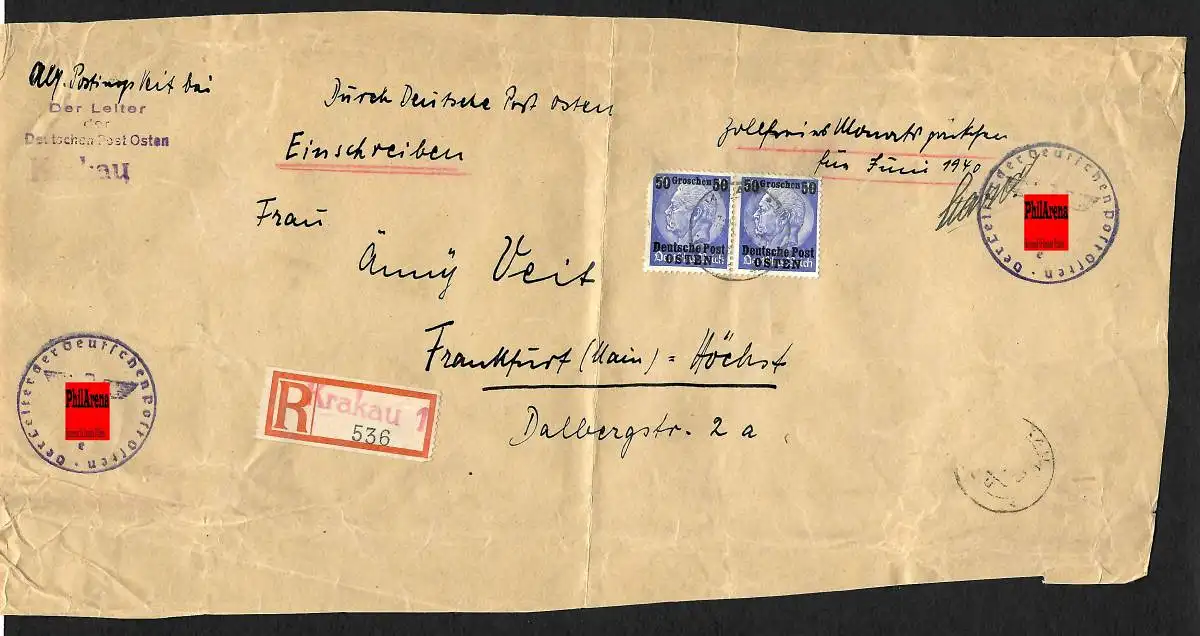 bei
Der Leiter
der
Deutschen Post Osten
Krakau
Durch Deutsche Post Osten
Einschreiben
Zollfreies Monatspäckchen
für Juni 1940
Frau
Änny Veit
Frankfurt (Main) = Höchst
Dalbergstr. 2 a
50 Groschen 50
Deutsche Post
OSTEN
50 Groschen 50
Deutsche Post
OSTEN
Der Leiter der Deutschen Post Osten
PhilArena
e
Der Leiter der Deutschen Post Osten
PhilArena
e
R
Krakau 1
536